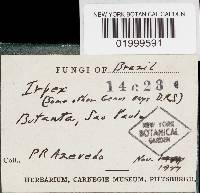 NEW YORK BOTANICAL GARDEN
01999591
FUNGI OF Brazil
14c23
Irpex
(Some other Genus says D.R.S)
Botanta, Sao Paulo
NEW YORK
BOTANICAL
GARDEN
Coll. P R Azevedo Nov.
HERBARIUM, CARNEGIE MUSEUM, PITTSBURGH